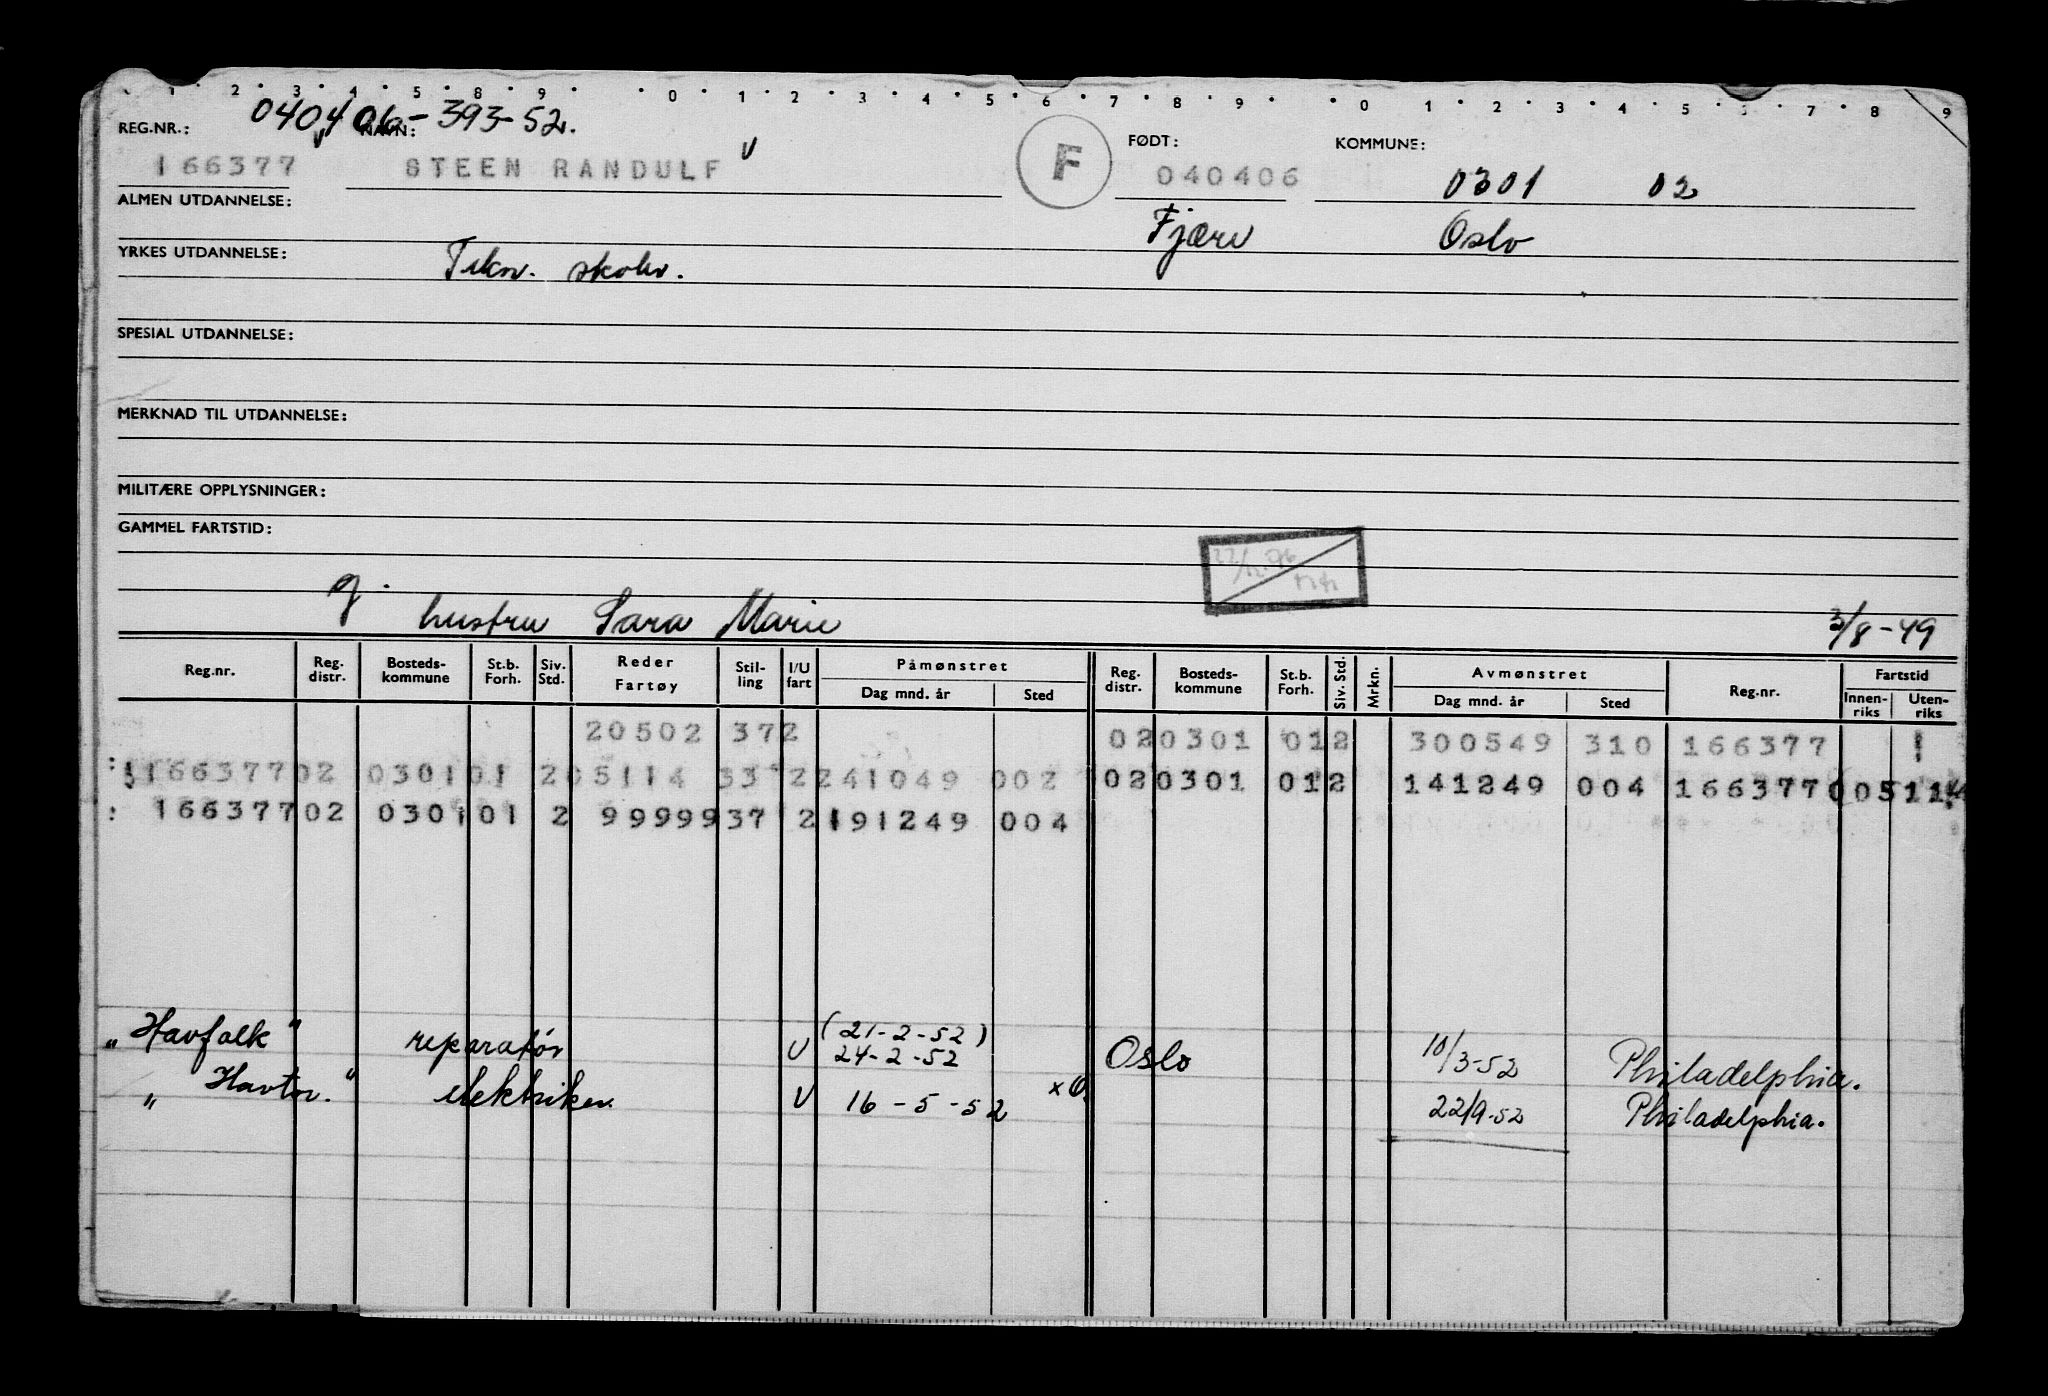 1 2 3 4 5 6 7 8 9 0 1 2 3 4 5 6 7 8 9 0 1 2 3 4 5 6 7 8 9
040406-393-52.
REG.NR.: NAVN: FØDT: KOMMUNE:
166377 STEEN RANDULF F 040406 0301 02
ALMEN UTDANNELSE: Fjære Oslo
YRKES UTDANNELSE: Tekn. skole.
SPESIAL UTDANNELSE:
MERKNAD TIL UTDANNELSE:
MILITÆRE OPPLYSNINGER:
GAMMEL FARTSTID:
g. hustru Sara Marie 3/8-49
Reg.nr. Reg. distr. Bosteds-kommune St.b. Forh. Siv. Std. Reder Fartøy Stil-ling I/U fart Påmønstret Dag mnd. år Sted Reg. distr. Bosteds-kommune St.b. Forh. Siv. Std. Mrkn. Avmønstret Dag mnd. år Sted Reg.nr. Fartstid Innen-riks Uten-riks
20502 372 020301 012 300549 310 166377
166377 02 0301 01 2 05114 33 2 241049 002 020301 012 141249 004 166377 00511
166377 02 0301 01 2 99999 37 2 191249 004
"Havfalk" reparatør U (21-2-52)
24-2-52 Oslo 10/3-52 Philadelphia.
"Havtor." elektriker U 16-5-52 x O. 22/9-52 Philadelphia.